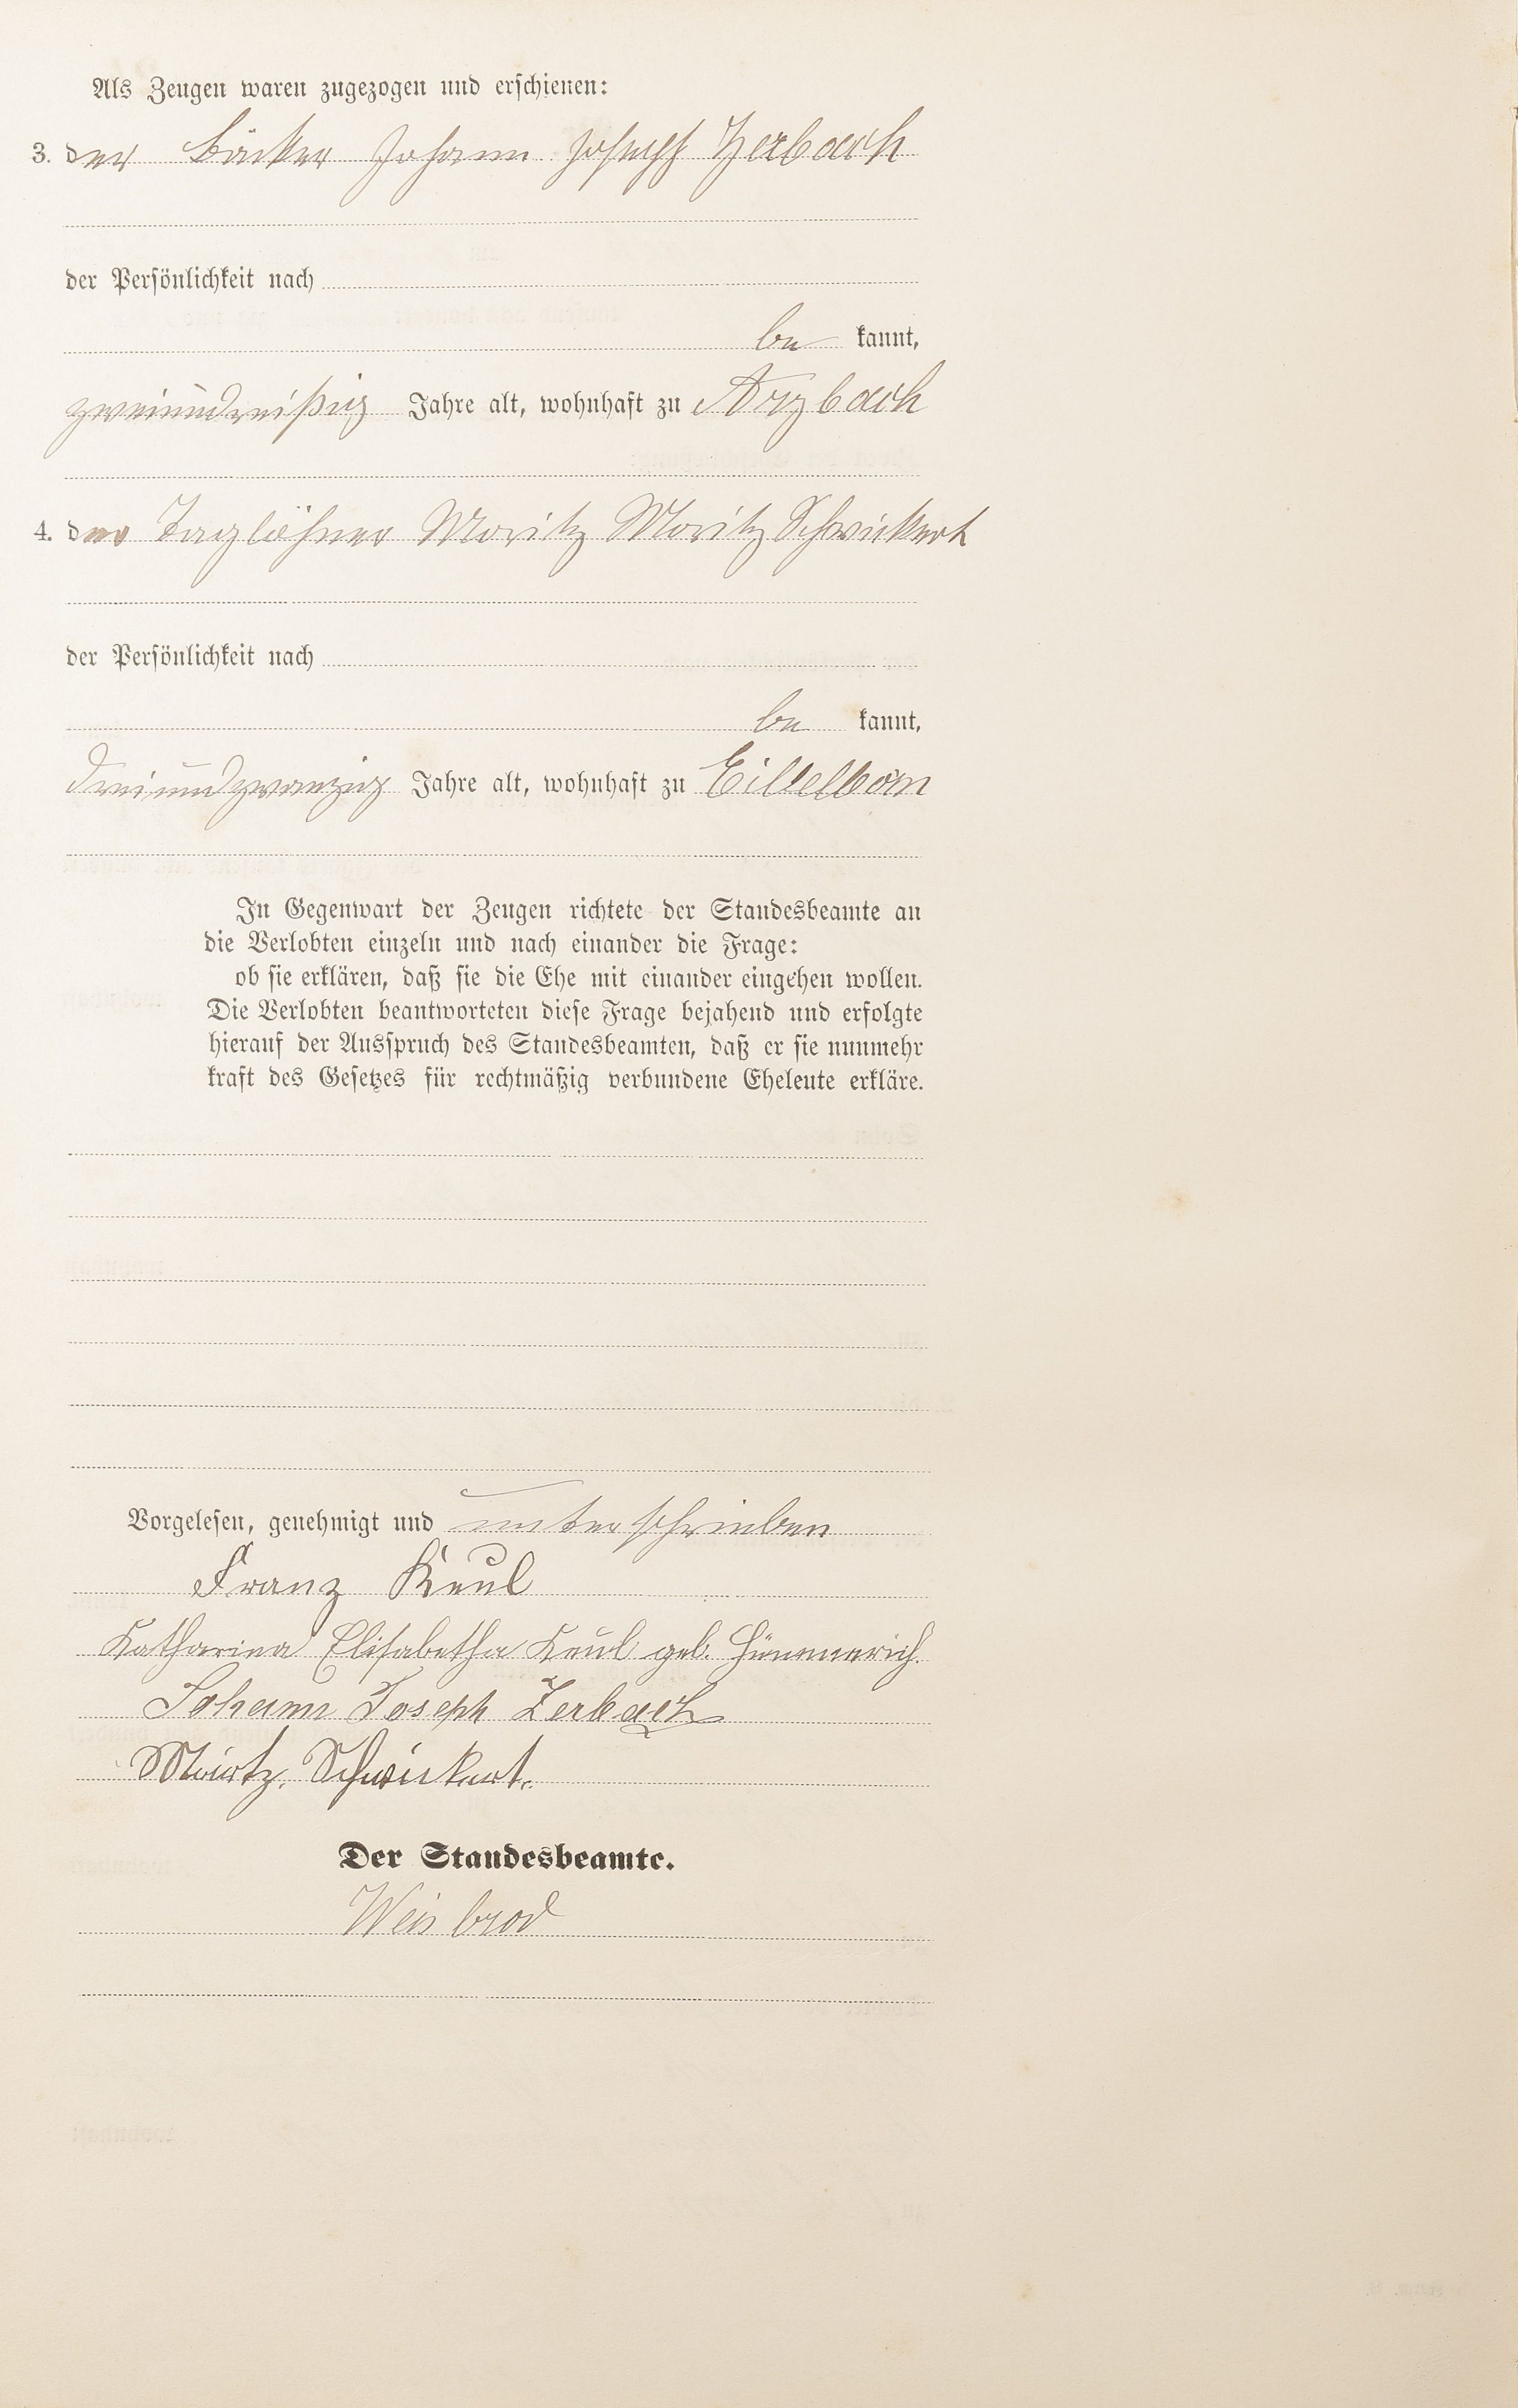 Als Zeugen waren zugezogen und erschienen:
3. der Bäcker Johann Joseph Zerbach
der Persönlichkeit nach
be kannt,
zweiunddreißig Jahre alt, wohnhaft zu Arzbach
4. der Taglöhner Moritz Moritz Schwickert
der Persönlichkeit nach
be kannt,
dreiundzwanzig Jahre alt, wohnhaft zu Eitelborn
In Gegenwart der Zeugen richtete der Standesbeamte an
die Verlobten einzeln und nach einander die Frage:
ob sie erklären, daß sie die Ehe mit einander eingehen wollen.
Die Verlobten beantworteten diese Frage bejahend und erfolgte
hierauf der Ausspruch des Standesbeamten, daß er sie nunmehr
kraft des Gesetzes für rechtmäßig verbundene Eheleute erkläre.
Vorgelesen, genehmigt und unterschrieben
Franz Keul
Katharina Elisabetha Keul geb. Hümmerich.
Johann Joseph Zerbach
Moritz Schwickert.
Der Standesbeamte.
Weisbrod